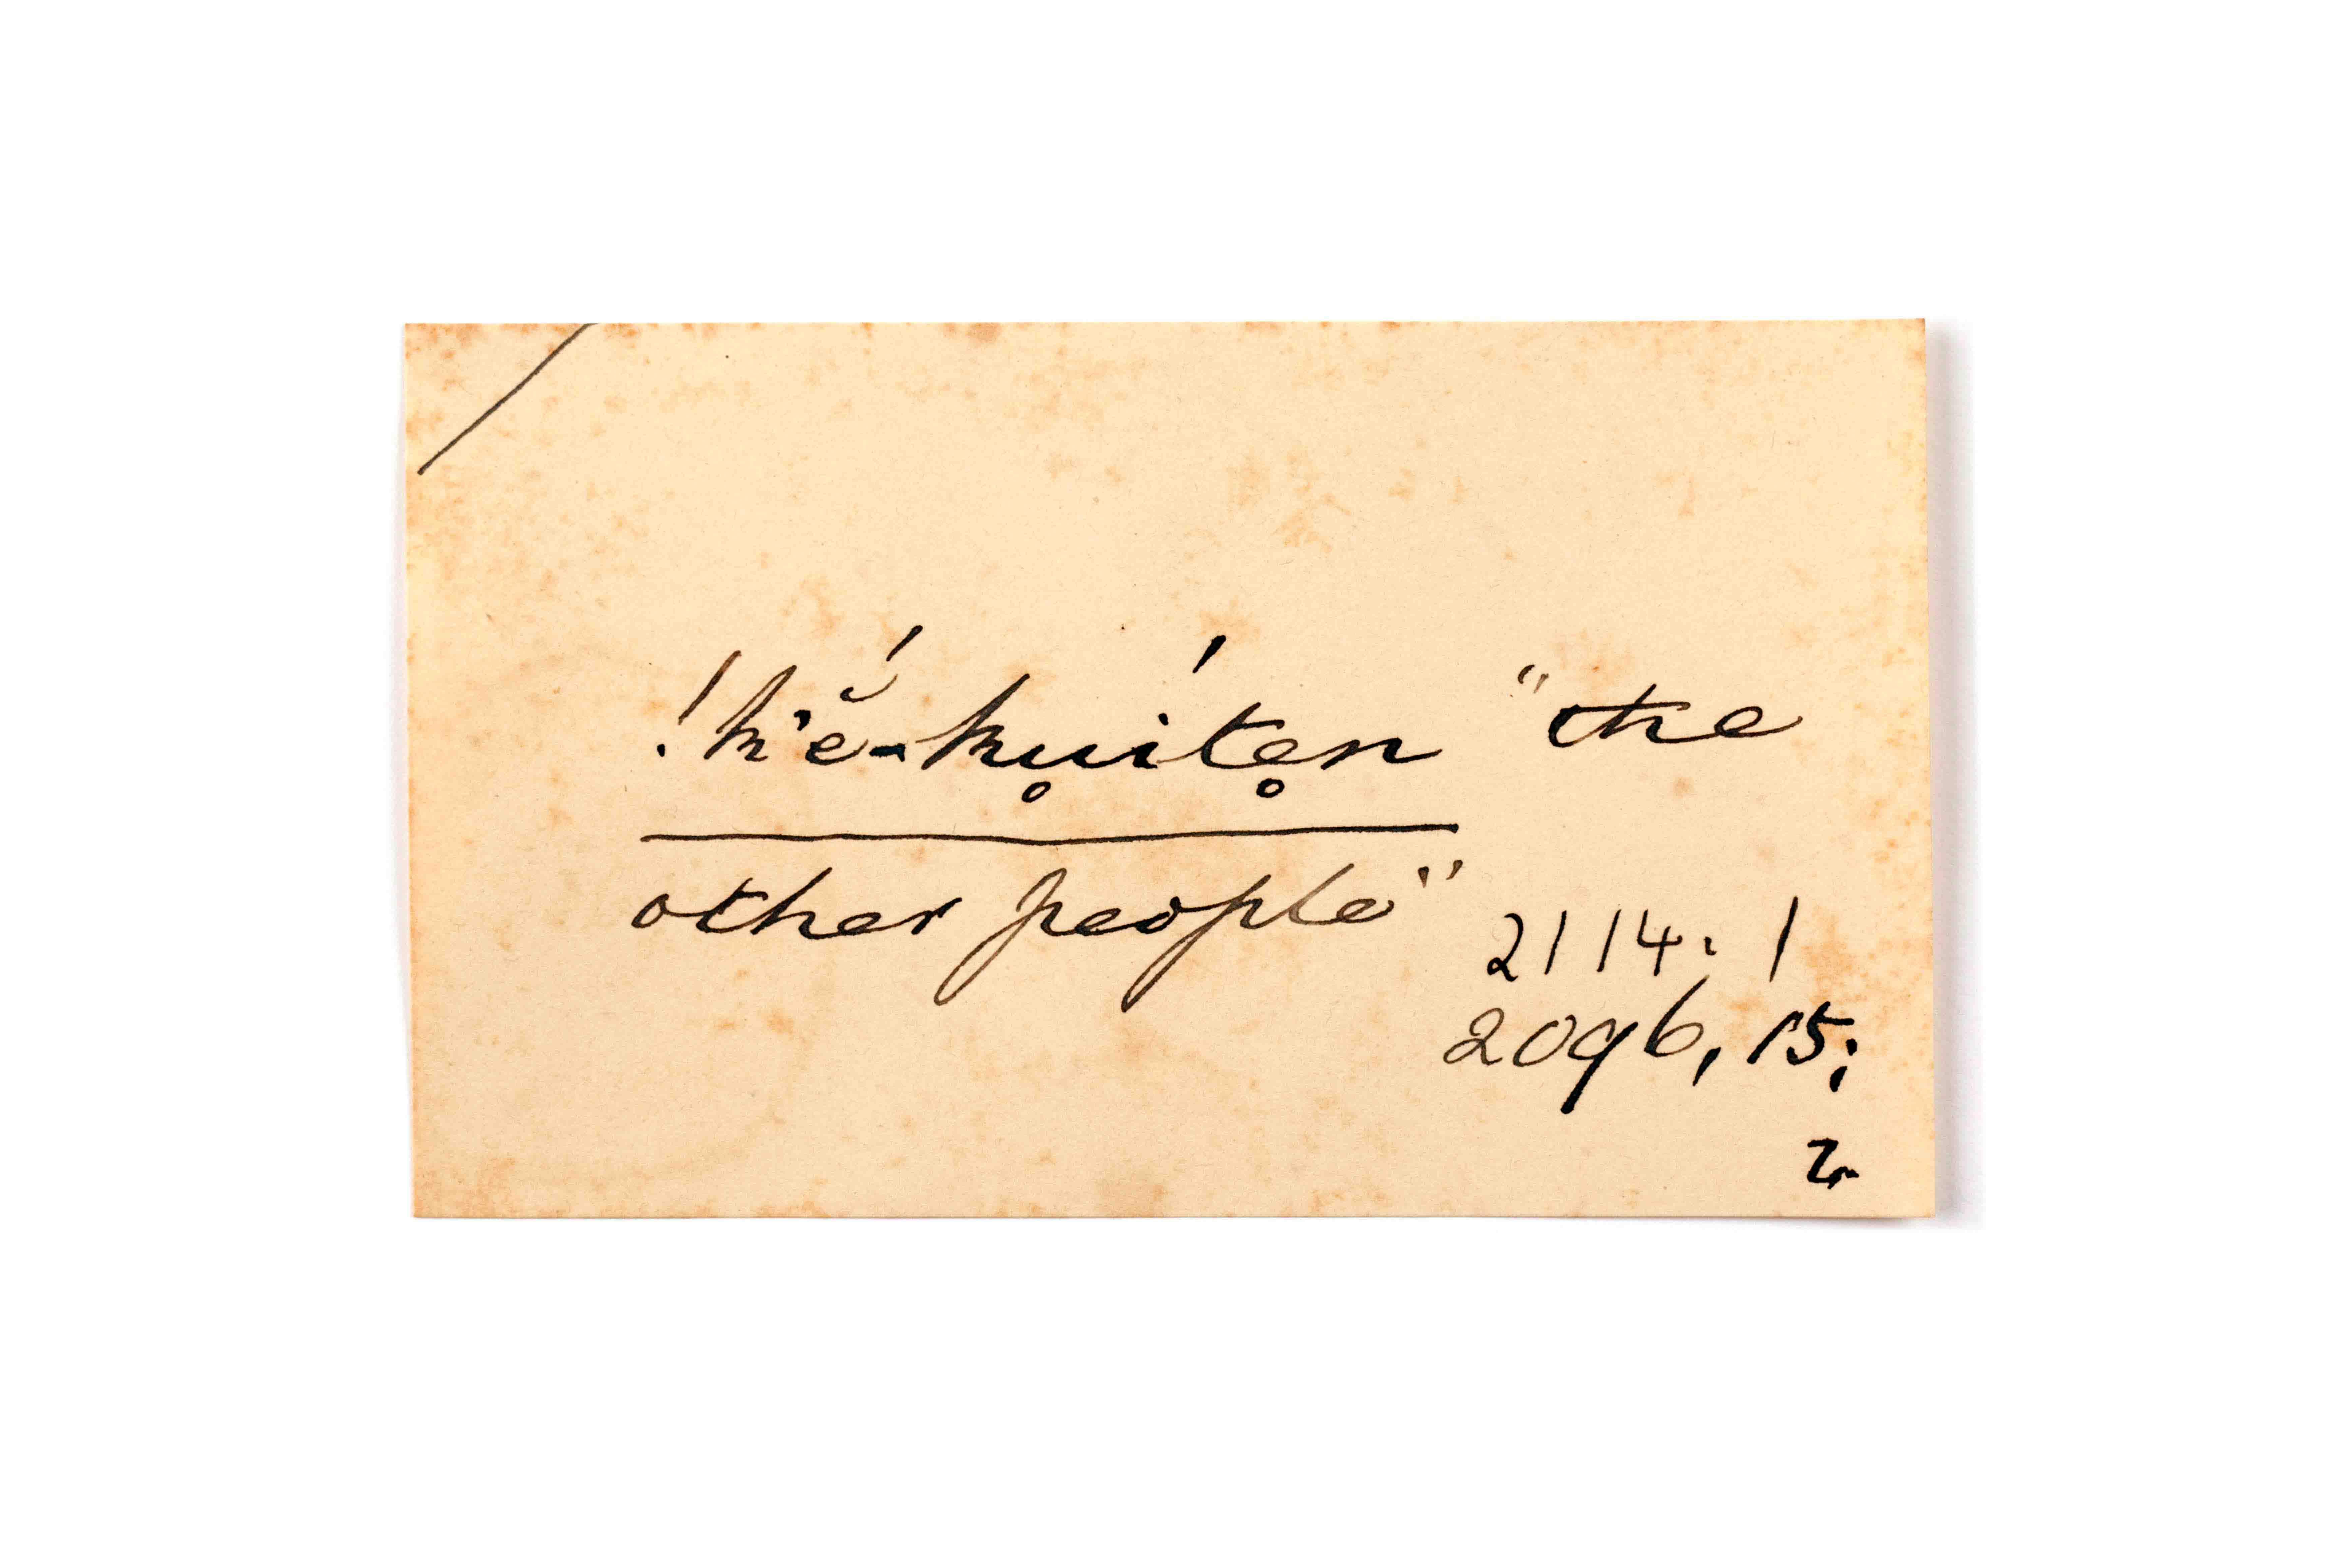 !k'ĕ́-ku̥íte̥n "the
other people"
2114: 1
2096, 15;
2